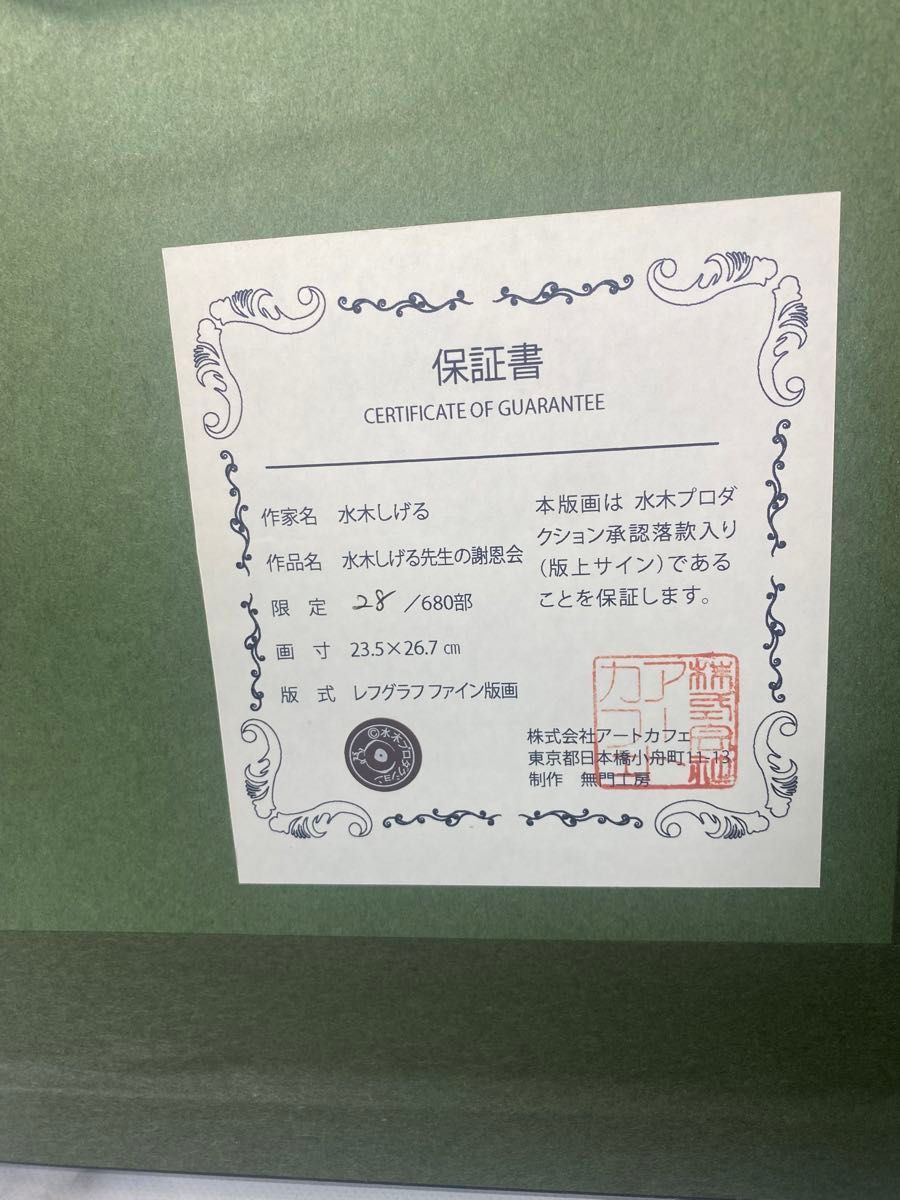 保証書
CERTIFICATE OF GUARANTEE
作家名 水木しげる
作品名 水木しげる先生の謝恩会
限 定 28 /680部
画 寸 23.5×26.7 ㎝
版 式 レフグラフ ファイン版画
本版画は 水木プロダ
クション承認落款入り
(版上サイン)である
ことを保証します。
©水木プロダクション
株式会社アートカフェ
東京都日本橋小舟町11-13
制作 無門工房
株式会社
アート
カフェ